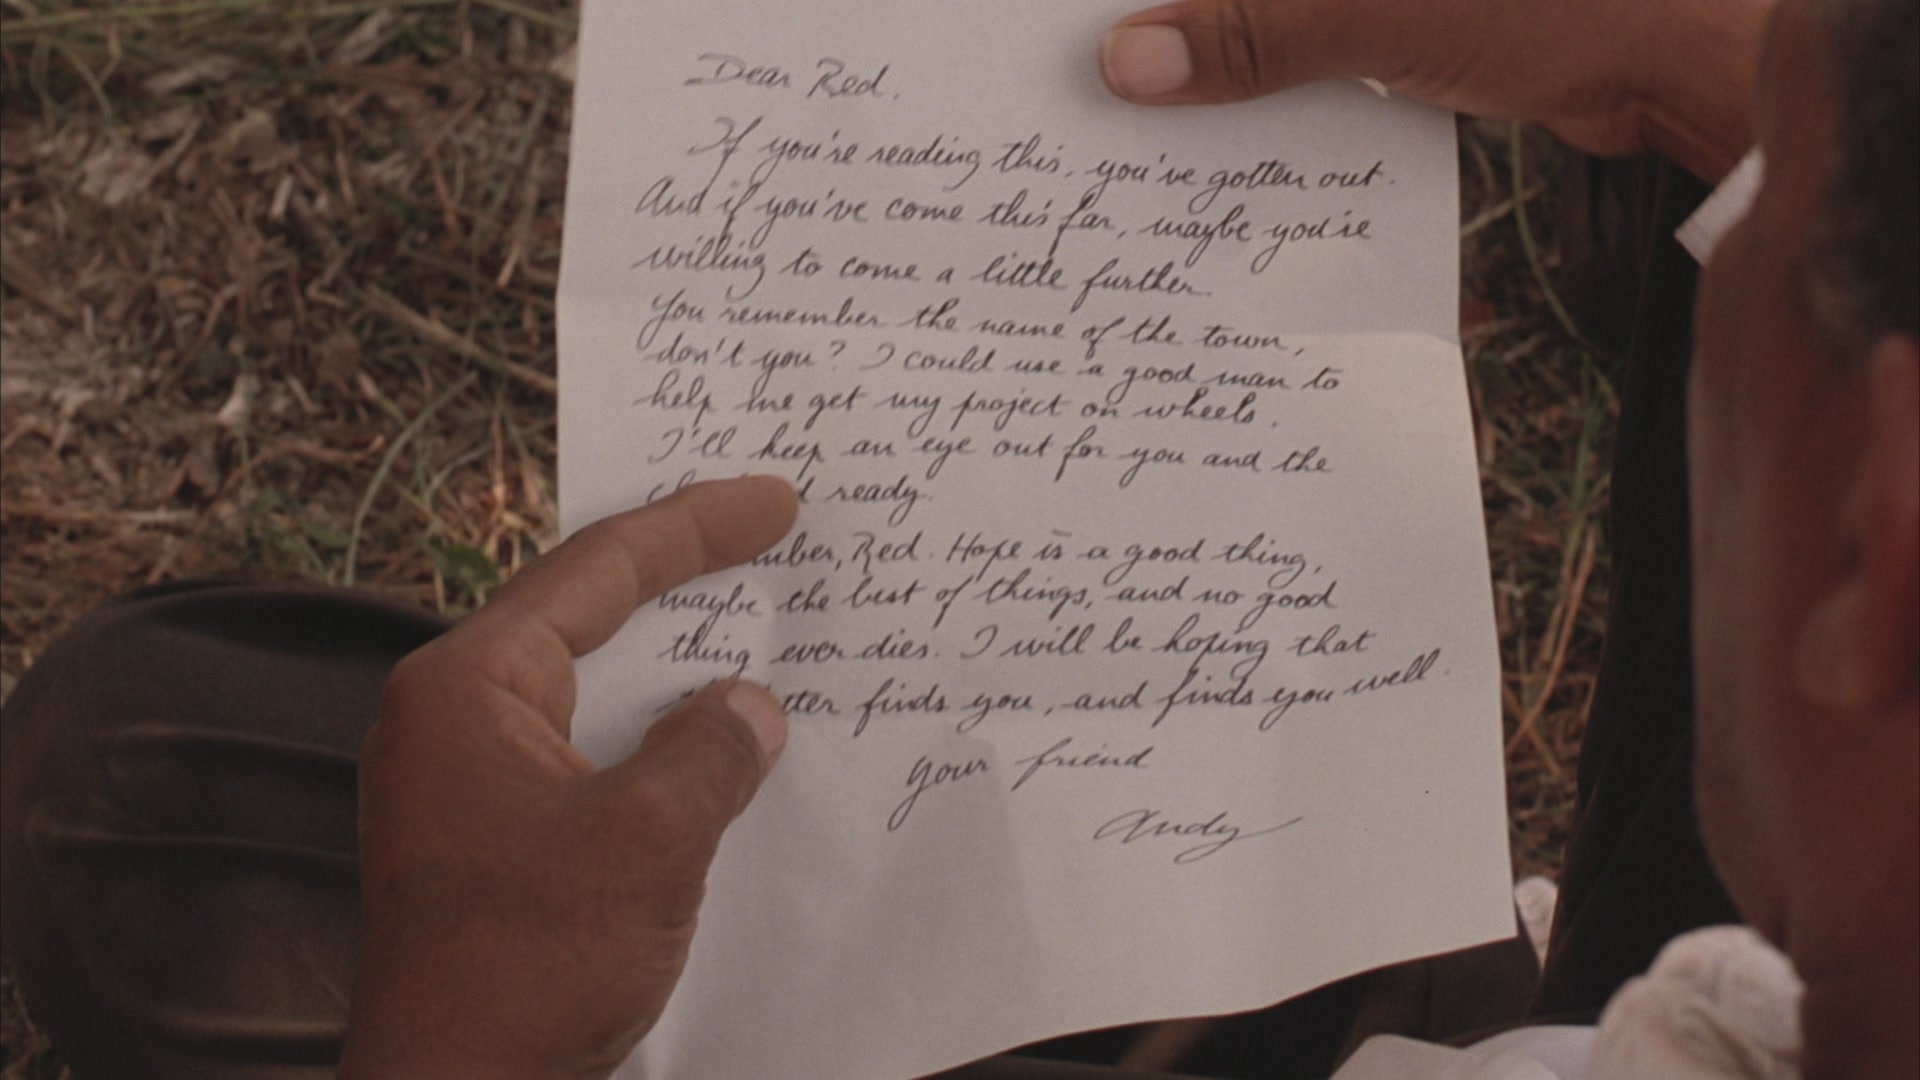 Dear Red.
If you're reading this, you've gotten out.
And if you've come this far, maybe you're
willing to come a little further.
You remember the name of the town,
don't you? I could use a good man to
help me get my project on wheels.
I'll keep an eye out for you and the
ready.
Red. Hope is a good thing,
maybe the best of things, and no good
thing ever dies. I will be hoping that
finds you, and finds you well.
Your friend
Andy